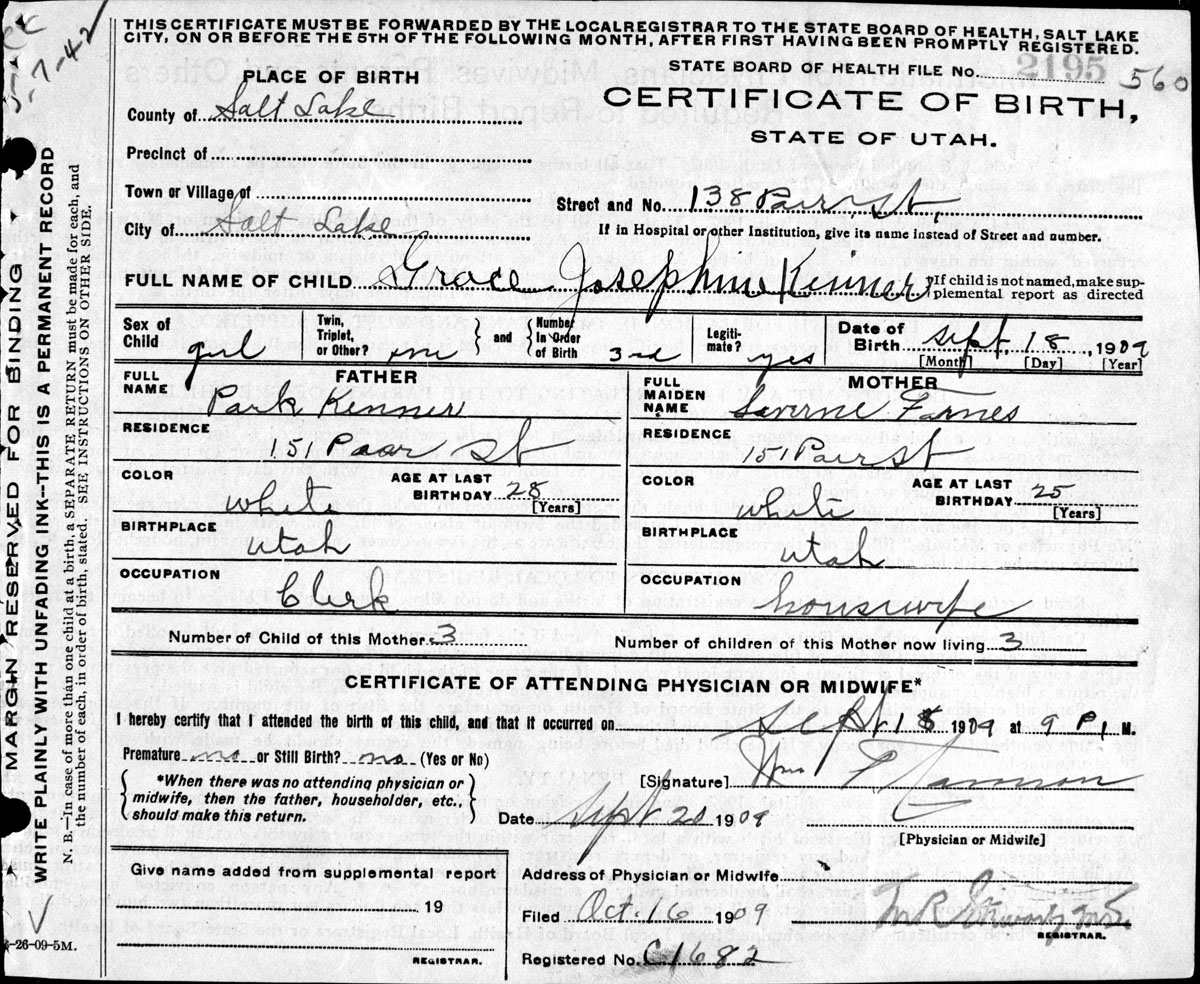 THIS CERTIFICATE MUST BE FORWARDED BY THE LOCAL REGISTRAR TO THE STATE BOARD OF HEALTH, SALT LAKE
CITY, ON OR BEFORE THE 5TH OF THE FOLLOWING MONTH, AFTER FIRST HAVING BEEN PROMPTLY REGISTERED.
-7-42
PLACE OF BIRTH
STATE BOARD OF HEALTH FILE No. 2195 560
County of Salt Lake
CERTIFICATE OF BIRTH,
STATE OF UTAH.
Precinct of
Town or Village of
Street and No. 138 st
City of Salt Lake
If in Hospital or other Institution, give its name instead of Street and number.
FULL NAME OF CHILD Grace Josephine Kenner
If child is not named, make sup-
plemental report as directed
Sex of Child girl
Twin, Triplet, or Other? one
and
Number in Order of Birth 3rd
Legiti-mate? yes
Date of Birth Sept 18, 1909
[Month] [Day] [Year]
FATHER
FULL NAME Park Kenner
RESIDENCE
151 st
COLOR white
AGE AT LAST BIRTHDAY 28
[Years]
BIRTHPLACE
Utah
OCCUPATION
Clerk
MOTHER
FULL MAIDEN NAME Laverne Farnes
RESIDENCE
151 st
COLOR white
AGE AT LAST BIRTHDAY 25
[Years]
BIRTHPLACE
Utah
OCCUPATION
housewife
Number of Child of this Mother 3
Number of children of this Mother now living 3
CERTIFICATE OF ATTENDING PHYSICIAN OR MIDWIFE*
I hereby certify that I attended the birth of this child, and that it occurred on Sept 18 1909 at 9 P M.
Premature no or Still Birth? no (Yes or No)
*When there was no attending physician or
midwife, then the father, householder, etc.,
should make this return.
[Signature] Wm
Date Sept 20 1909
[Physician or Midwife]
Give name added from supplemental report
19
REGISTRAR.
Address of Physician or Midwife
Filed Oct. 16 1909
M.D.
REGISTRAR.
Registered No. C1682
MARGIN RESERVED FOR BINDING
WRITE PLAINLY WITH UNFADING INK--THIS IS A PERMANENT RECORD
N. B.—In case of more than one child at a birth a SEPARATE RETURN must be made for each, and
the number of each, in order of birth, stated. SEE INSTRUCTIONS ON OTHER SIDE.
-26-09-5M.